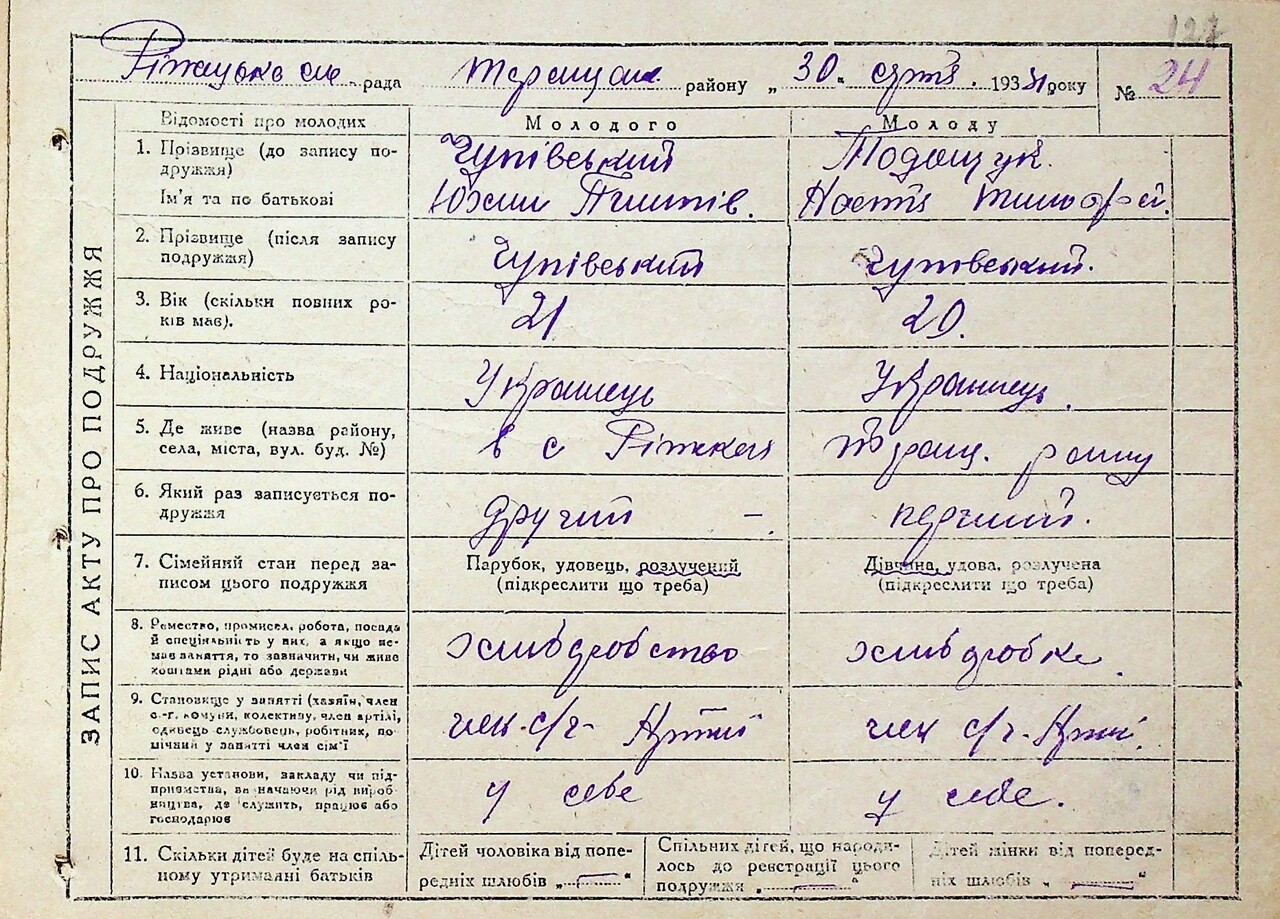 127
Ріжкувська с. рада Таращан. району „30„ серп. 1933 року № 24
ЗАПИС АКТУ ПРО ПОДРУЖЖЯ
Відомості про молодих Молодого Молоду
1. Прізвище (до запису по-
дружжя) Чупівський Тодощук.
Ім'я та по батькові Юхим Настя Тимофей.
2. Прізвище (після запису
подружжя) Чупівський Чупівський.
3. Вік (скільки повних ро-
ків має). 21 20.
4. Національність Украінець Украінець.
5. Де живе (назва району,
села, міста, вул. буд. №) в с Ріжках Таращ. району
6. Який раз записується по-
дружжя другий –. перший.
7. Сімейний стан перед за-
писом цього подружжя
Парубок, удовець, розлучений
(підкреслити що треба)
Дівчина, удова, розлучена
(підкреслити що треба)
8. Ремество, промисел, робота, посада
й спеціяльність у них, а якщо не-
має заняття, то зазначити, чи живе
коштами рідні або держави
хліборобство хліборобка
9. Становище у занятті (хазяїн, член
с.-г. комуни, колективу, член артілі,
одинець службовець, робітник, по-
мічний у занятті член сім'ї
член с/г Артілі член с/г. Артілі.
10. Назва установи, закладу чи під-
приємства, визначаючи рід вироб-
ництва, де служить, працює або
господарює
у себе у себе.
11. Скільки дітей буде на спіль-
ному утриманні батьків
Дітей чоловіка від попе-
редніх шлюбів „—“
Спільних дітей, що народи-
лось до реєстрації цього
подружжя „—“
Дітей жінки від поперед-
ніх шлюбів „—“